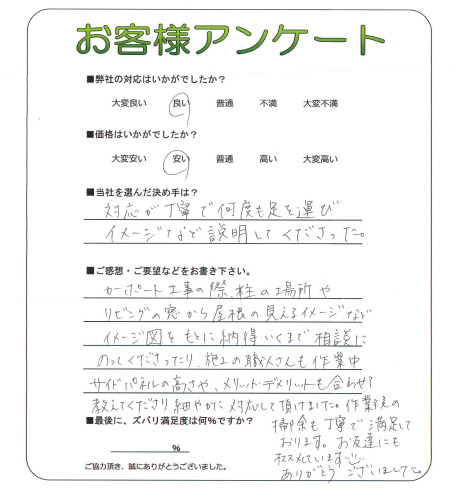 お客様アンケート
■弊社の対応はいかがでしたか？
大変良い 良い 普通 不満 大変不満
■価格はいかがでしたか？
大変安い 安い 普通 高い 大変高い
■当社を選んだ決め手は？
対応が丁寧で何度も足を運び
イメージなど説明してくださった。
■ご感想・ご要望などをお書き下さい。
カーポート工事の際、柱の場所や
リビングの窓から屋根の見えるイメージなど
イメージ図をもとに納得いくまで相談に
のってくださったり、施工の職人さんも作業中
サイドパネルの高さや、メリット・デメリットも合わせて
教えてくださり細やかに対応して頂けました。作業後の
掃除も丁寧で満足して
おります。お友達にも
オススメしています
ありがとうございました。
■最後に、ズバリ満足度は何%ですか？
%
ご協力頂き、誠にありがとうございました。